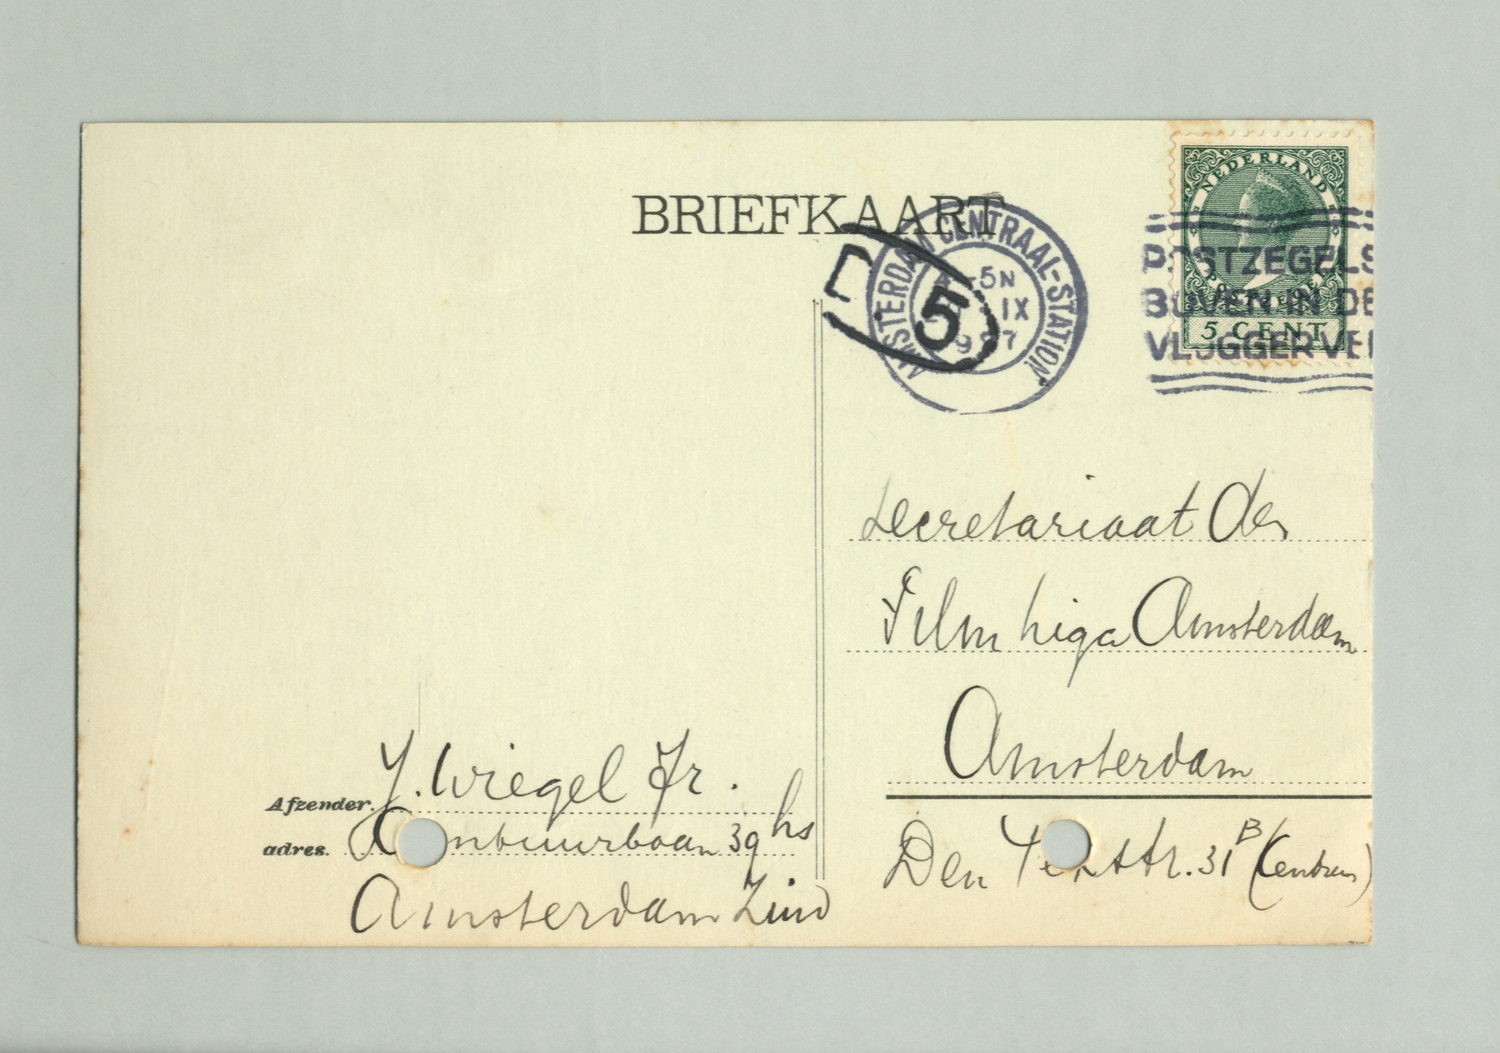 BRIEFKAART
NEDERLAND
5 CENT
AMSTERDAM CENTRAAL-STATION
-5N
IX
5
POSTZEGELS
BOVEN IN DE
Secretariaat der
Film Liga Amsterdam
Amsterdam
Den Texstr. 31 B (Centrum)
Afzender. J. Wiegel Jr.
adres. 39 hs
Amsterdam Zuid